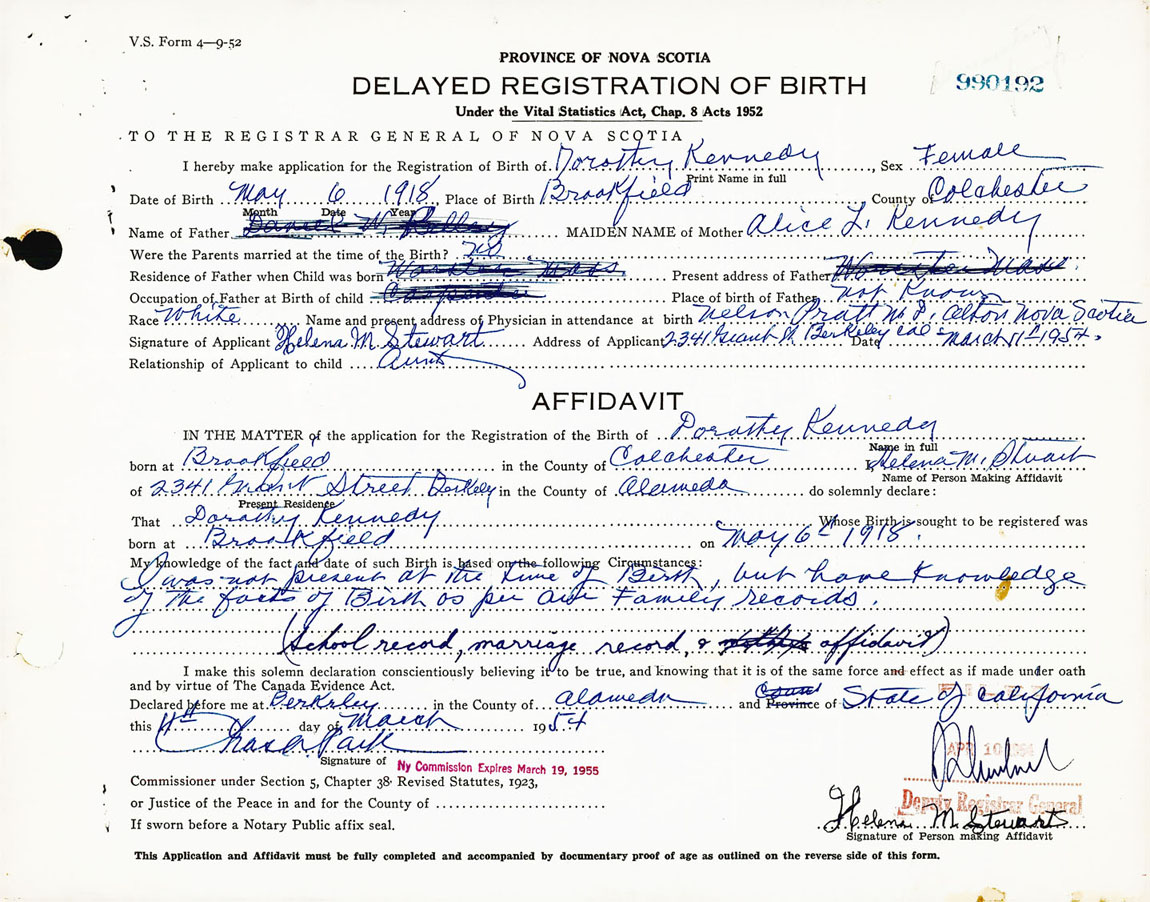 V.S. Form 4—9-52
PROVINCE OF NOVA SCOTIA
DELAYED REGISTRATION OF BIRTH
990192
Under the Vital Statistics Act, Chap. 8 Acts 1952
TO THE REGISTRAR GENERAL OF NOVA SCOTIA
I hereby make application for the Registration of Birth of Dorothy Kennedy, Sex Female
Print Name in full
Date of Birth May 6 1918, Place of Birth Brookfield County of Colchester
Month Date Year
Name of Father Daniel W. MAIDEN NAME of Mother Alice L. Kennedy
Were the Parents married at the time of the Birth? No
Residence of Father when Child was born Mass Present address of Father Mass
Occupation of Father at Birth of child Carpenter Place of birth of Father not Known
Race White Name and present address of Physician in attendance at birth Nelson Pratt M.D. Alton Nova Scotia
Signature of Applicant Helena M. Stewart Address of Applicant 2341 Grant St Berkeley Cal Date March 11-1954.
Relationship of Applicant to child Aunt
AFFIDAVIT
IN THE MATTER of the application for the Registration of the Birth of Dorothy Kennedy
Name in full
born at Brookfield in the County of Colchester I, Helena M. Stuart
Name of Person Making Affidavit
of 2341 Grant Street Berkeley in the County of Alameda do solemnly declare:
Present Residence
That Dorothy Kennedy Whose Birth is sought to be registered was
born at Brookfield on May 6th 1918.
My knowledge of the fact and date of such Birth is based on the following Circumstances:
I was not present at the time of Birth, but have Knowledge
of the facts of Birth as per our Family records.
(School record, marriage record, & affidavit)
I make this solemn declaration conscientiously believing it to be true, and knowing that it is of the same force and effect as if made under oath
and by virtue of The Canada Evidence Act.
Declared before me at Berkeley in the County of Alameda and Province of State of California
this 11th day of March 1954
Signature of My Commission Expires March 19, 1955
APR 10 1954
Commissioner under Section 5, Chapter 38 Revised Statutes, 1923,
Deputy Registrar General
or Justice of the Peace in and for the County of
Helena M. Stewart
If sworn before a Notary Public affix seal.
Signature of Person making Affidavit
This Application and Affidavit must be fully completed and accompanied by documentary proof of age as outlined on the reverse side of this form.